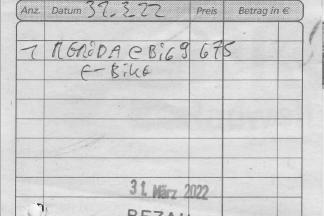 Anz. Datum 31.3.22 Preis Betrag in €
1 MERiDA eBiG 9 675
E-BiKe
31. März 2022
BEZAH